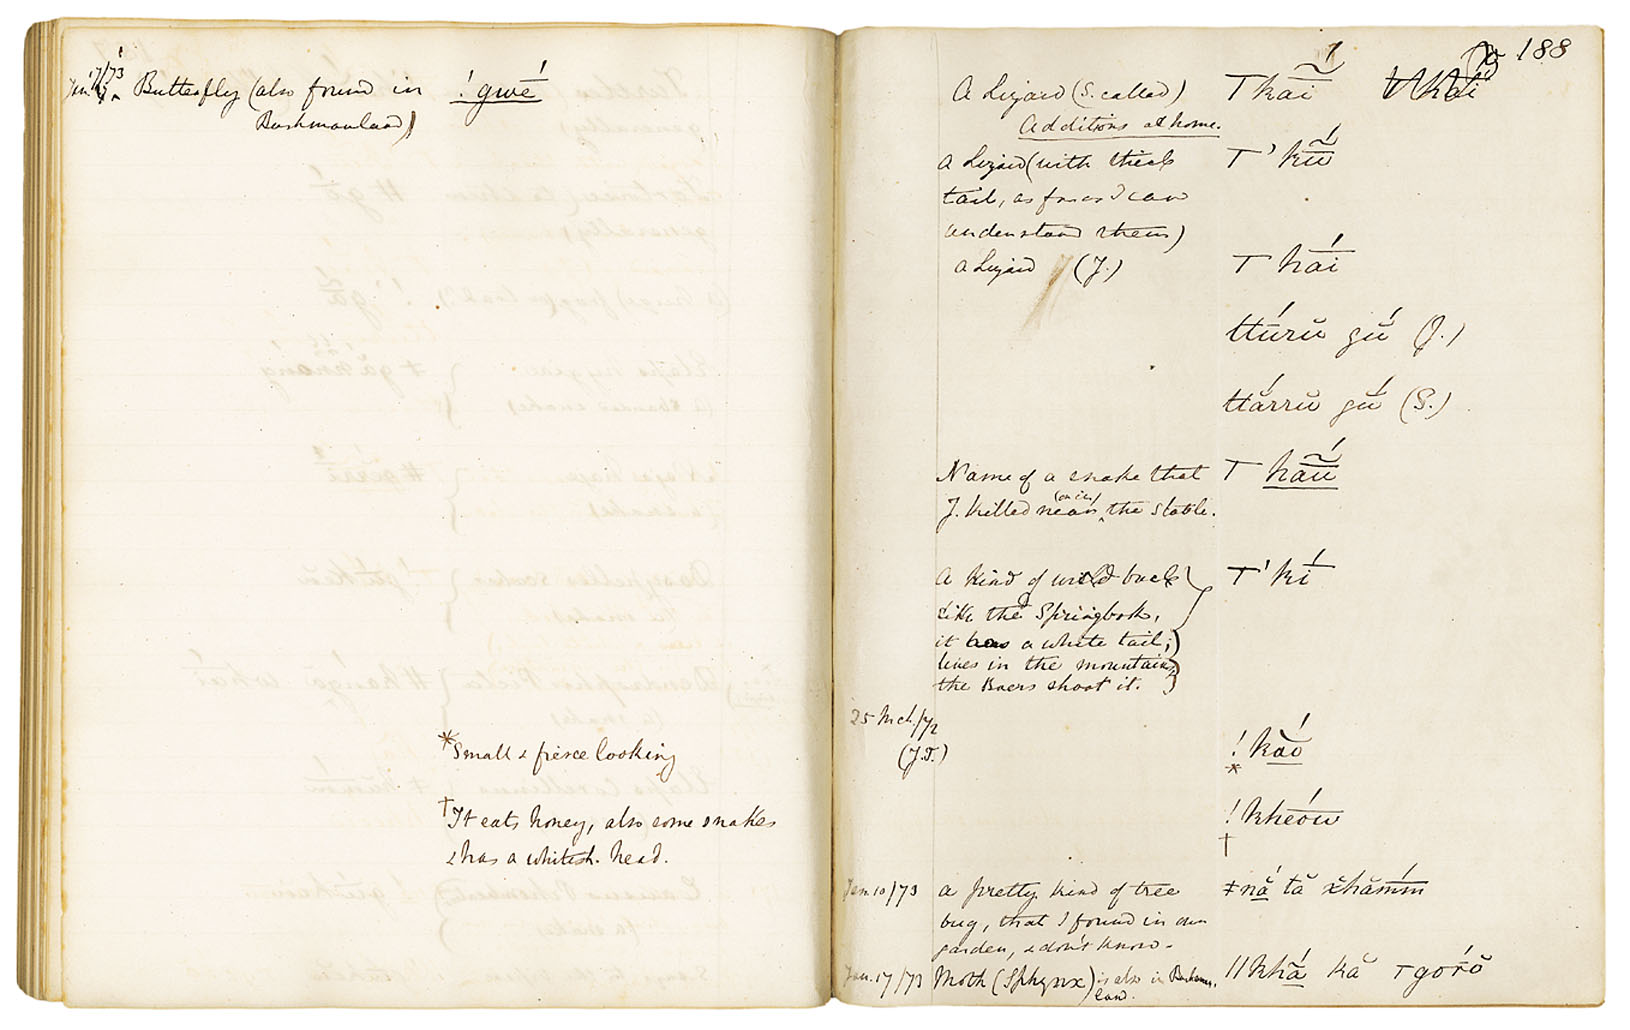 Jan. 17/73 Butterfly (also found in ! gwé
Bushmanland)
*Small & fierce looking
†It eats honey, also some snakes
& has a whitish head.
188
A Lizard (S. called) T kai
Additions at home.
A Lizard (with thick T 'kũ
tail, as far as I can
understand them)
A Lizard (J.) T hāi
ttúrŭ gŭ́ (J.)
ttắrrŭ gŭ́ (S.)
Name of a snake that T hāũ
J. killed near (on it) the stable.
A kind of wild buck T' kí
like the Springbok,
it has a white tail;
lives in the mountains,
the Boers shoot it.
25 Mch./72
(J.T.) ! kăó
*
! khéóu
†
Jan. 10/73 A pretty kind of tree ǂnắ tă x̌hăm̄́m
bug, that I found in our
garden, & don't know.
Jan. 17/73 Moth (Sphynx) is also in Bushman- ǁkhắ kă Tgórŏ
land.